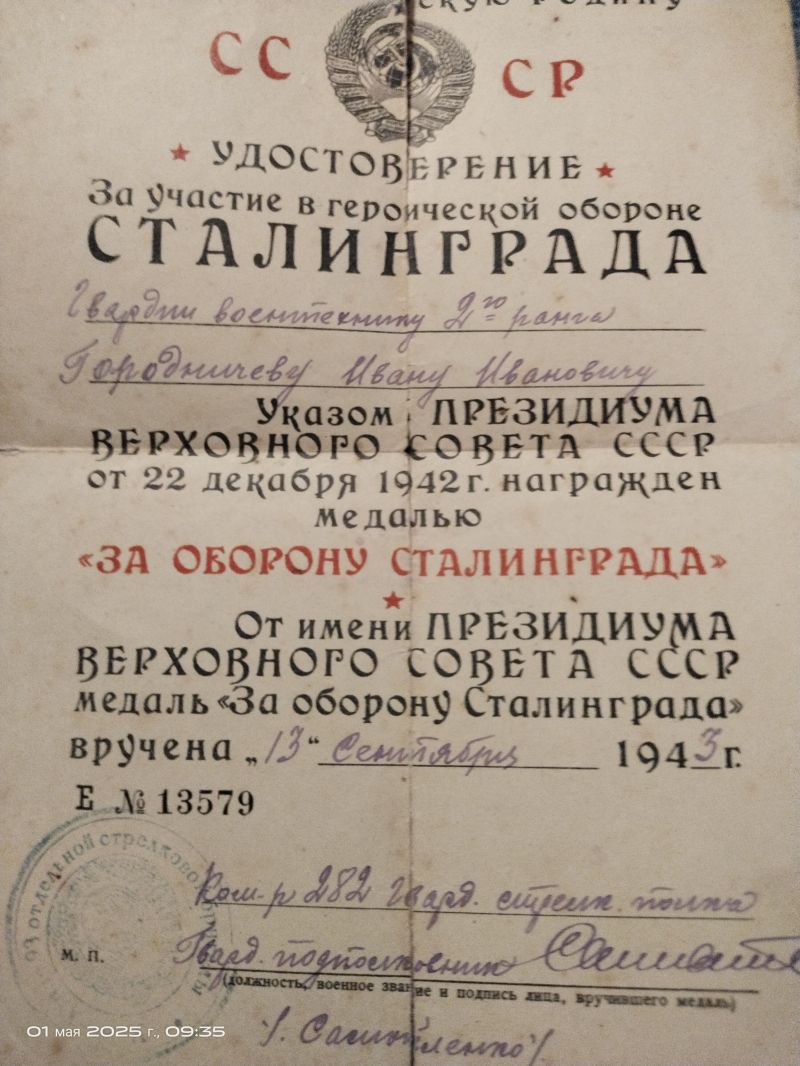 СКУЮ РОДИНУ
СС СР
УДОСТОВЕРЕНИЕ
За участие в героической обороне
СТАЛИНГРАДА
Гвардии воентехнику 2го ранга
Городничеву Ивану Ивановичу
Указом ПРЕЗИДИУМА
ВЕРХОВНОГО СОВЕТА СССР
от 22 декабря 1942 г. награжден
медалью
«ЗА ОБОРОНУ СТАЛИНГРАДА»
От имени ПРЕЗИДИУМА
ВЕРХОВНОГО СОВЕТА СССР
медаль «За оборону Сталинграда»
вручена „13“ Сентября 1943 г.
Е № 13579
отдельной стрелковой
Ком-р 282 Гвард. стрелк. полка
М. П. Гвард. подполковник
(должность, военное звание и подпись лица, вручившего медаль)
/. Самойленко/.
01 мая 2025 г., 09:35